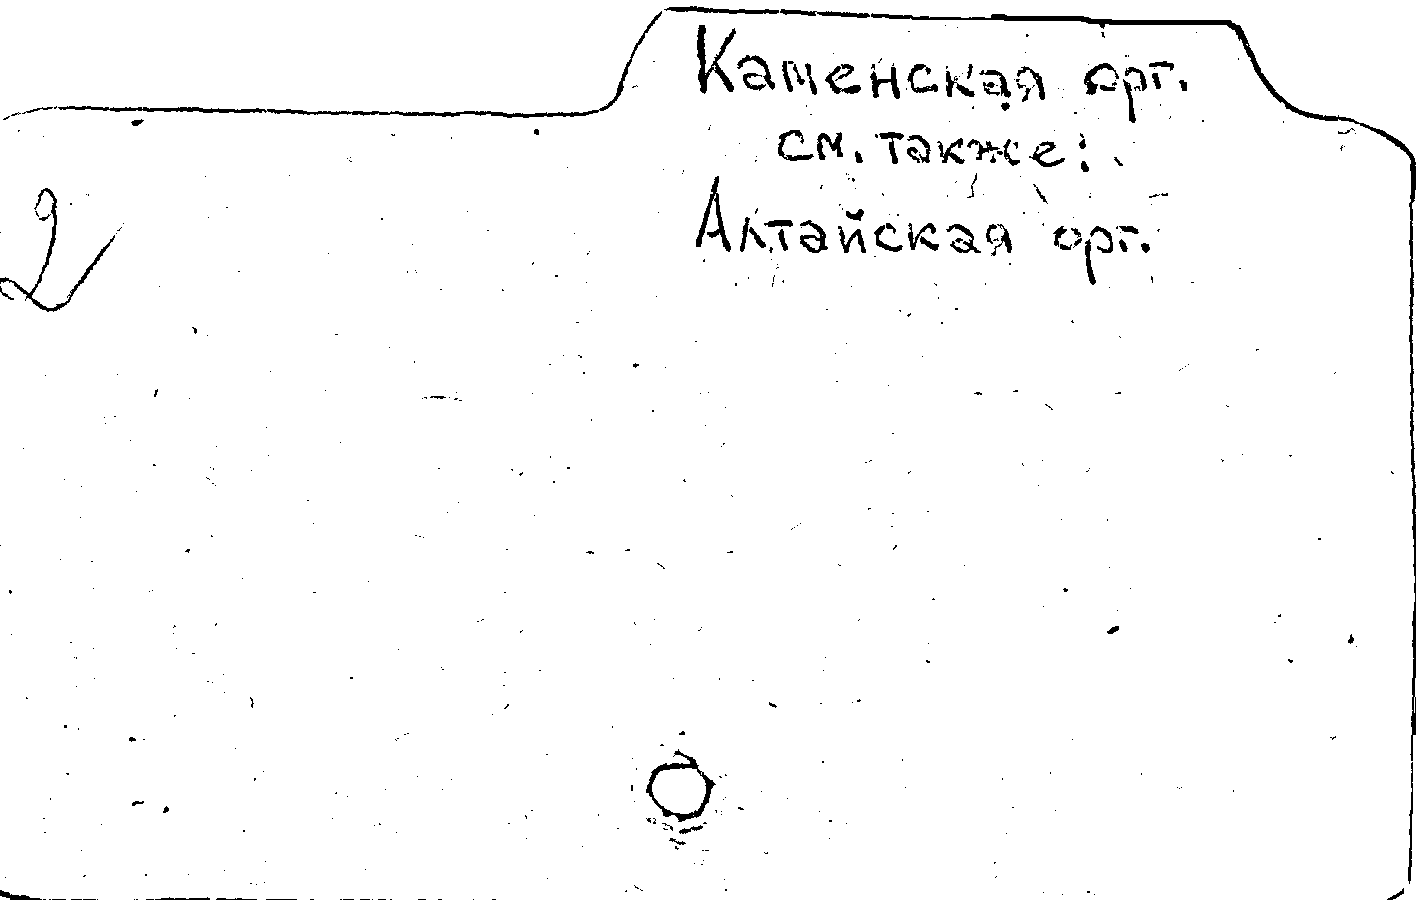 Каменская орг.
см. также:
Алтайская орг.
2